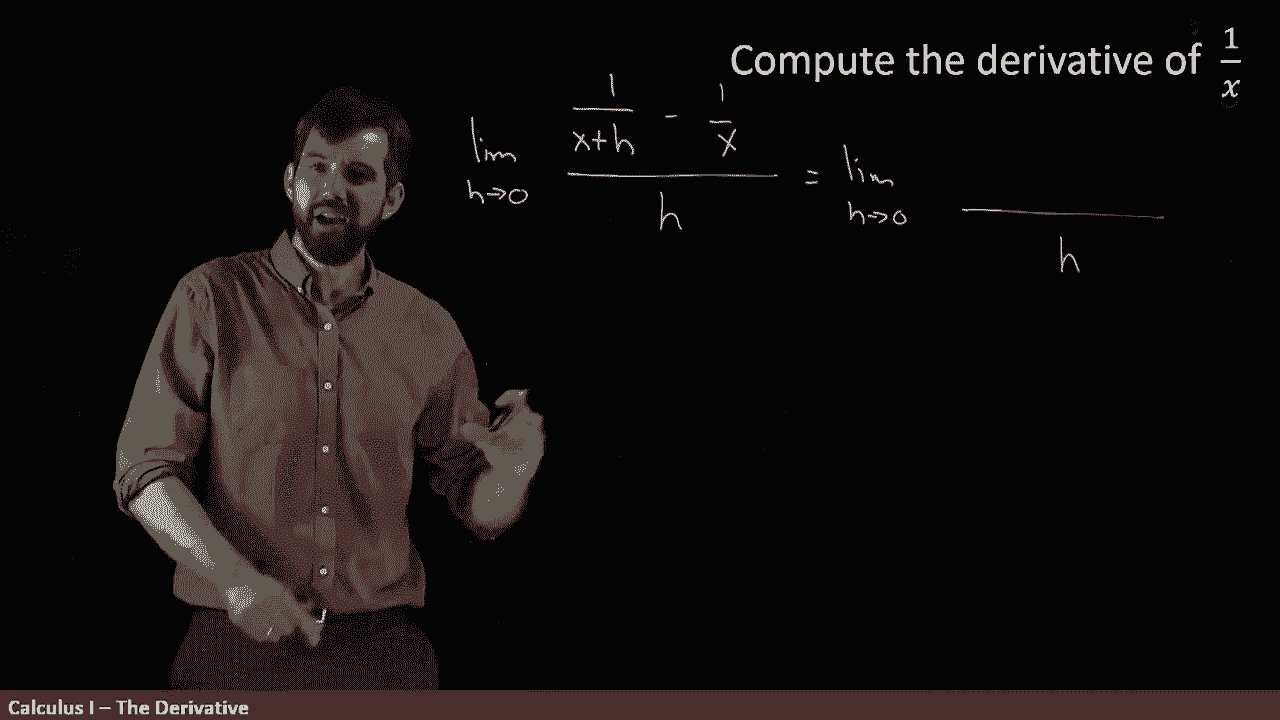 Compute the derivative of 1/x
lim h→0 (1/(x+h) - 1/x)/h = lim h→0 ___/h
Calculus I – The Derivative